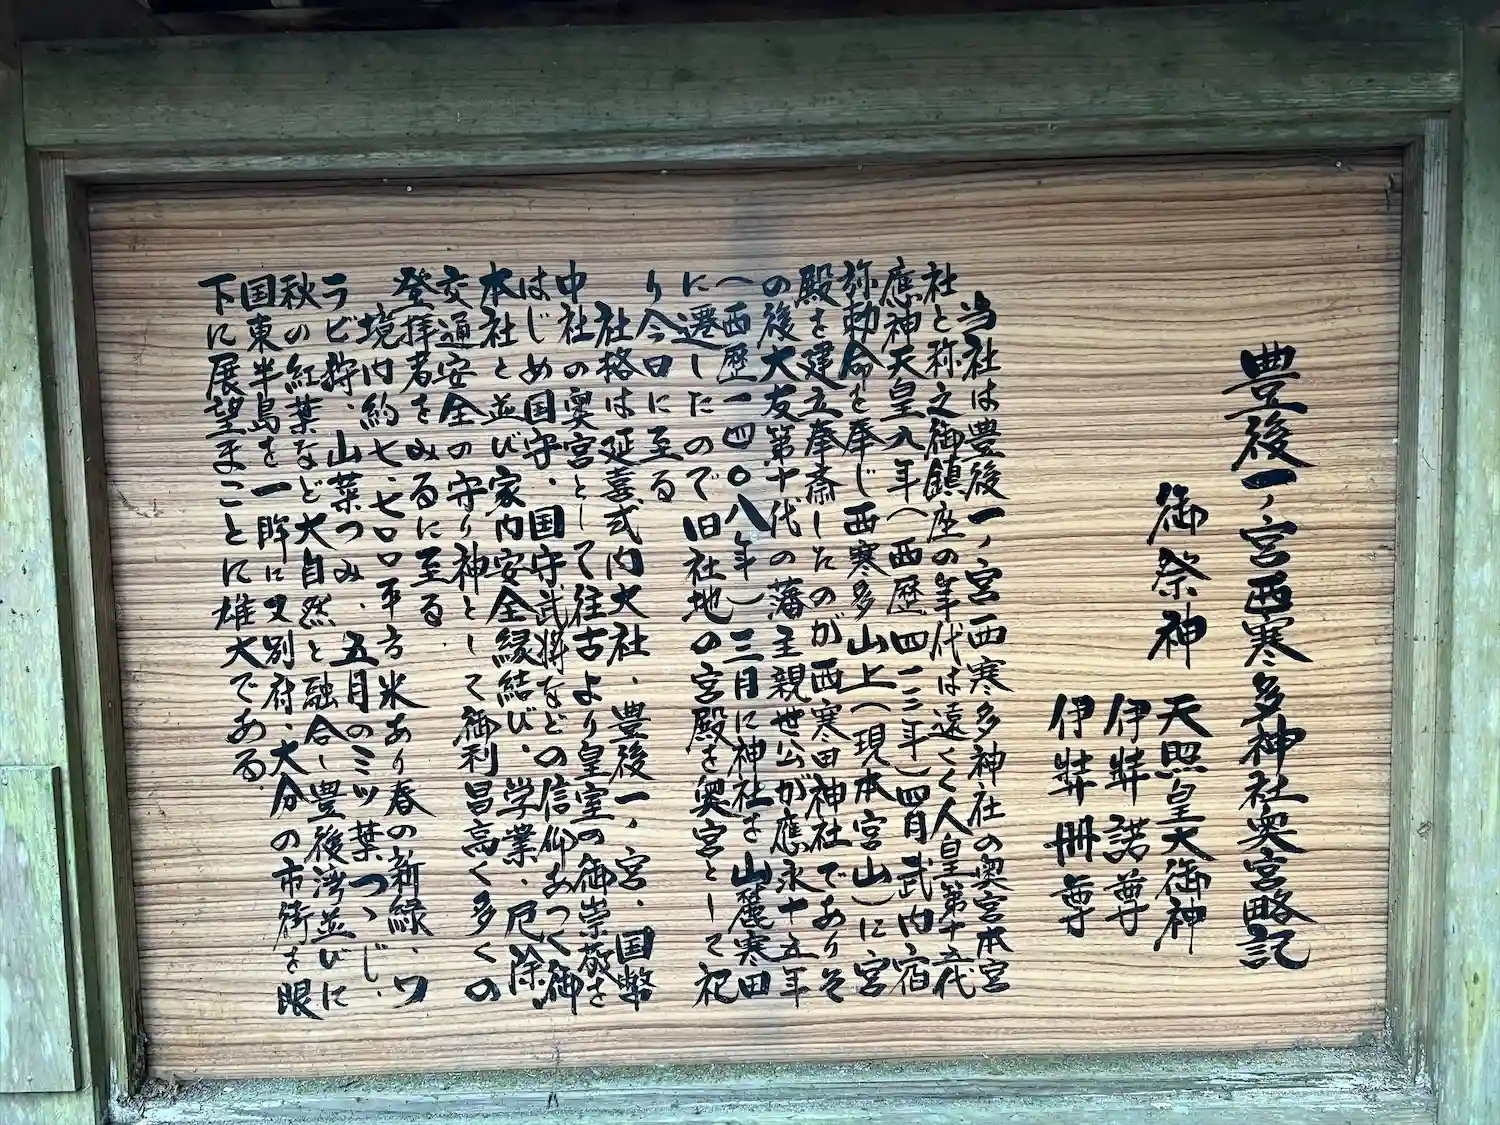 豊後一ノ宮西寒多神社奥宮略記
御祭神
天照皇大御神
伊弉諾尊
伊弉冊尊
当社は豊後一ノ宮西寒多神社の奥宮本宮
社と称之御鎮座の年代は遠くく人皇第十五代
應神天皇八年（西歴四一三年）四月武内宿
弥勅命を奉じ西寒多山上（現本宮山）に宮
殿を建立奉斎したのが西寒田神社でありそ
の後大友第十代の藩主親世公が應永十五年
（西歴一四〇八年）三月に神社を山麓寒田
に遷したので旧社地の宮殿を奥宮として祀
り今日に至る
社格は延喜式内大社、豊後一ノ宮、国幣
中社の奥宮として往古より皇室の御崇敬を
はじめ国守、国守武将などの信仰あつく御
本社と並び家内安全縁結び、学業、厄除
交通安全の守り神として御利昌高く多くの
登拝者をみるに至る
境内約七、七〇〇平方米あり春の新緑、ワ
ラビ狩、山菜つみ、五月のミツ葉つゝじ、
秋の紅葉など大自然と融合し豊後湾並びに
国東半島を一眸に又別府、大分の市街を眼
下に展望まことに雄大である